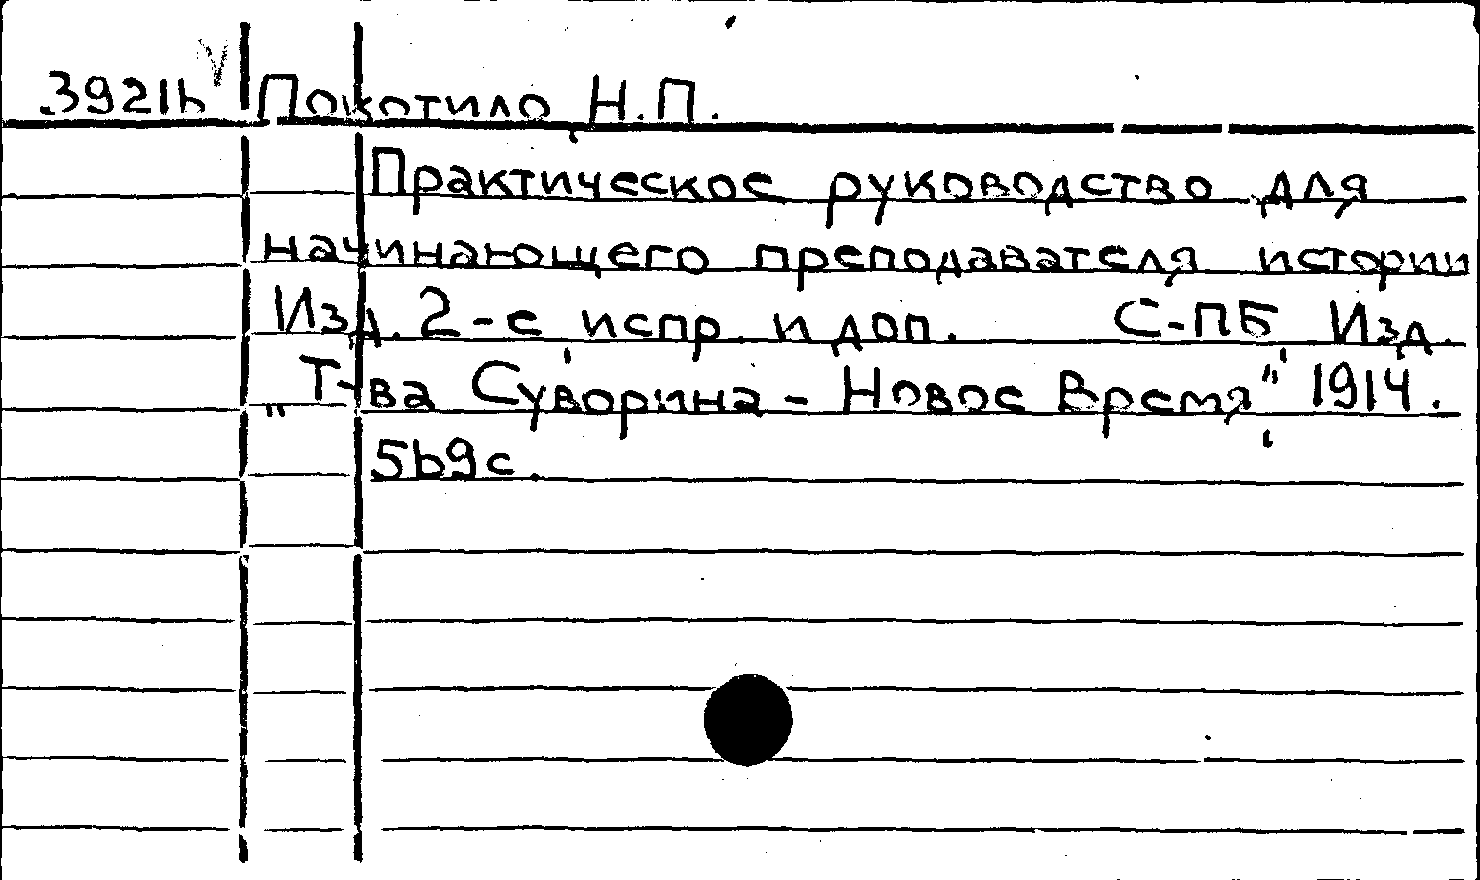 39216 Покотило, Н.П.
Практическое руководство для
начинающего преподавателя истории
Изд. 2-е, испр. и доп. С-ПБ, Изд.
„Т-ва Суворина - Новое Время", 1914.
569с.